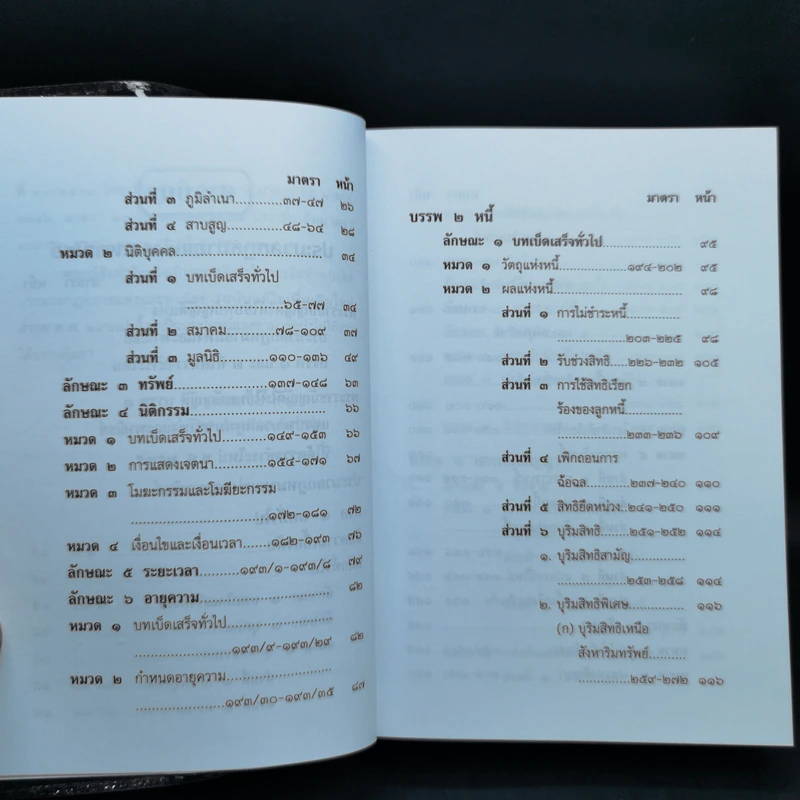 มาตรา หน้า
ส่วนที่ ๓ ภูมิลำเนา............๓๗-๔๗ ๒๖
ส่วนที่ ๔ สาบสูญ............๔๘-๖๔ ๒๘
หมวด ๒ นิติบุคคล............ ๓๔
ส่วนที่ ๑ บทเบ็ดเสร็จทั่วไป
............๖๕-๗๗ ๓๔
ส่วนที่ ๒ สมาคม............๗๘-๑๐๙ ๓๗
ส่วนที่ ๓ มูลนิธิ............๑๑๐-๑๓๖ ๔๙
ลักษณะ ๓ ทรัพย์............๑๓๗-๑๔๘ ๖๓
ลักษณะ ๔ นิติกรรม............ ๖๖
หมวด ๑ บทเบ็ดเสร็จทั่วไป............๑๔๙-๑๕๓ ๖๖
หมวด ๒ การแสดงเจตนา............๑๕๔-๑๗๑ ๖๗
หมวด ๓ โมฆะกรรมและโมฆียะกรรม
............๑๗๒-๑๘๑ ๗๒
หมวด ๔ เงื่อนไขและเงื่อนเวลา............๑๘๒-๑๙๓ ๗๖
ลักษณะ ๕ ระยะเวลา............๑๙๓/๑-๑๙๓/๘ ๗๙
ลักษณะ ๖ อายุความ............ ๘๒
หมวด ๑ บทเบ็ดเสร็จทั่วไป............
............๑๙๓/๙-๑๙๓/๒๙ ๘๒
หมวด ๒ กำหนดอายุความ............
............๑๙๓/๓๐-๑๙๓/๓๕ ๘๗
มาตรา หน้า
บรรพ ๒ หนี้
ลักษณะ ๑ บทเบ็ดเสร็จทั่วไป............ ๙๕
หมวด ๑ วัตถุแห่งหนี้............๑๙๔-๒๐๒ ๙๕
หมวด ๒ ผลแห่งหนี้............ ๙๘
ส่วนที่ ๑ การไม่ชำระหนี้............
............๒๐๓-๒๒๕ ๙๘
ส่วนที่ ๒ รับช่วงสิทธิ......๒๒๖-๒๓๒ ๑๐๕
ส่วนที่ ๓ การใช้สิทธิเรียก
ร้องของลูกหนี้............
............๒๓๓-๒๓๖ ๑๐๙
ส่วนที่ ๔ เพิกถอนการ
ฉ้อฉล............๒๓๗-๒๔๐ ๑๑๐
ส่วนที่ ๕ สิทธิยึดหน่วง..๒๔๑-๒๕๐ ๑๑๑
ส่วนที่ ๖ บุริมสิทธิ............๒๕๑-๒๕๒ ๑๑๔
๑. บุริมสิทธิสามัญ............
............๒๕๓-๒๕๘ ๑๑๔
๒. บุริมสิทธิพิเศษ............ ๑๑๖
(ก) บุริมสิทธิเหนือ
สังหาริมทรัพย์............
............๒๕๙-๒๗๒ ๑๑๖